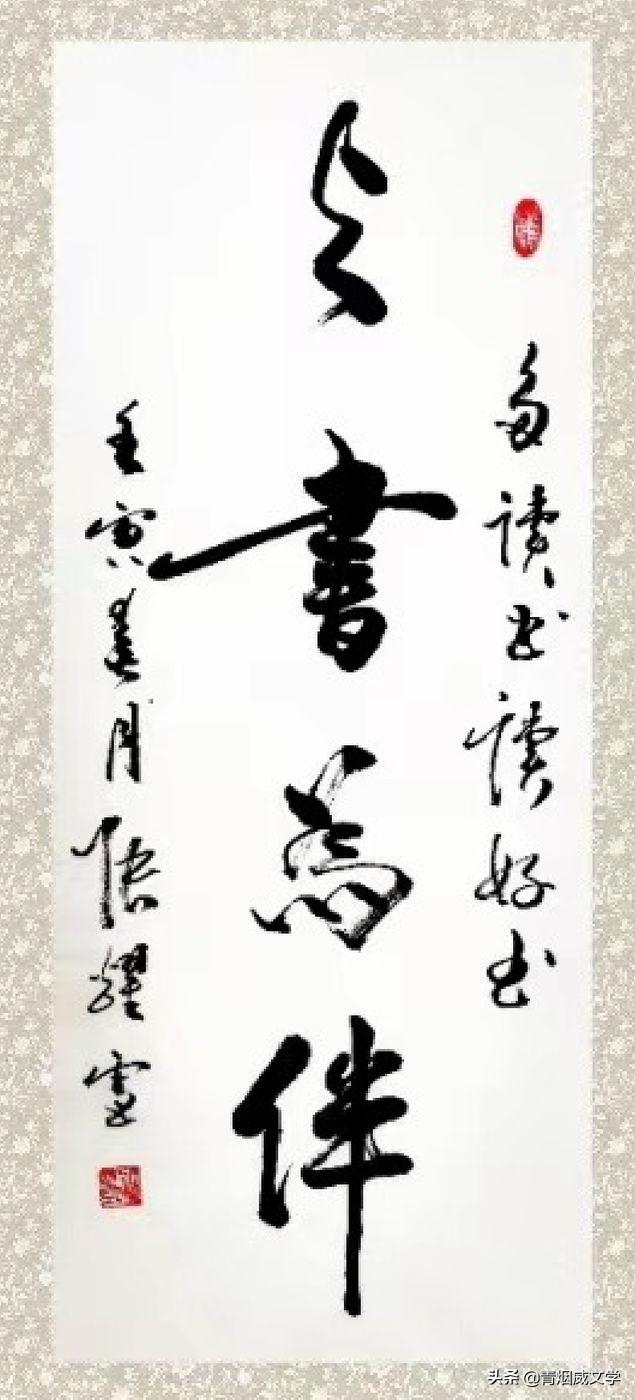 多讀书讀好书
与書為伴
壬寅春月張耀
头条 @青烟威文学